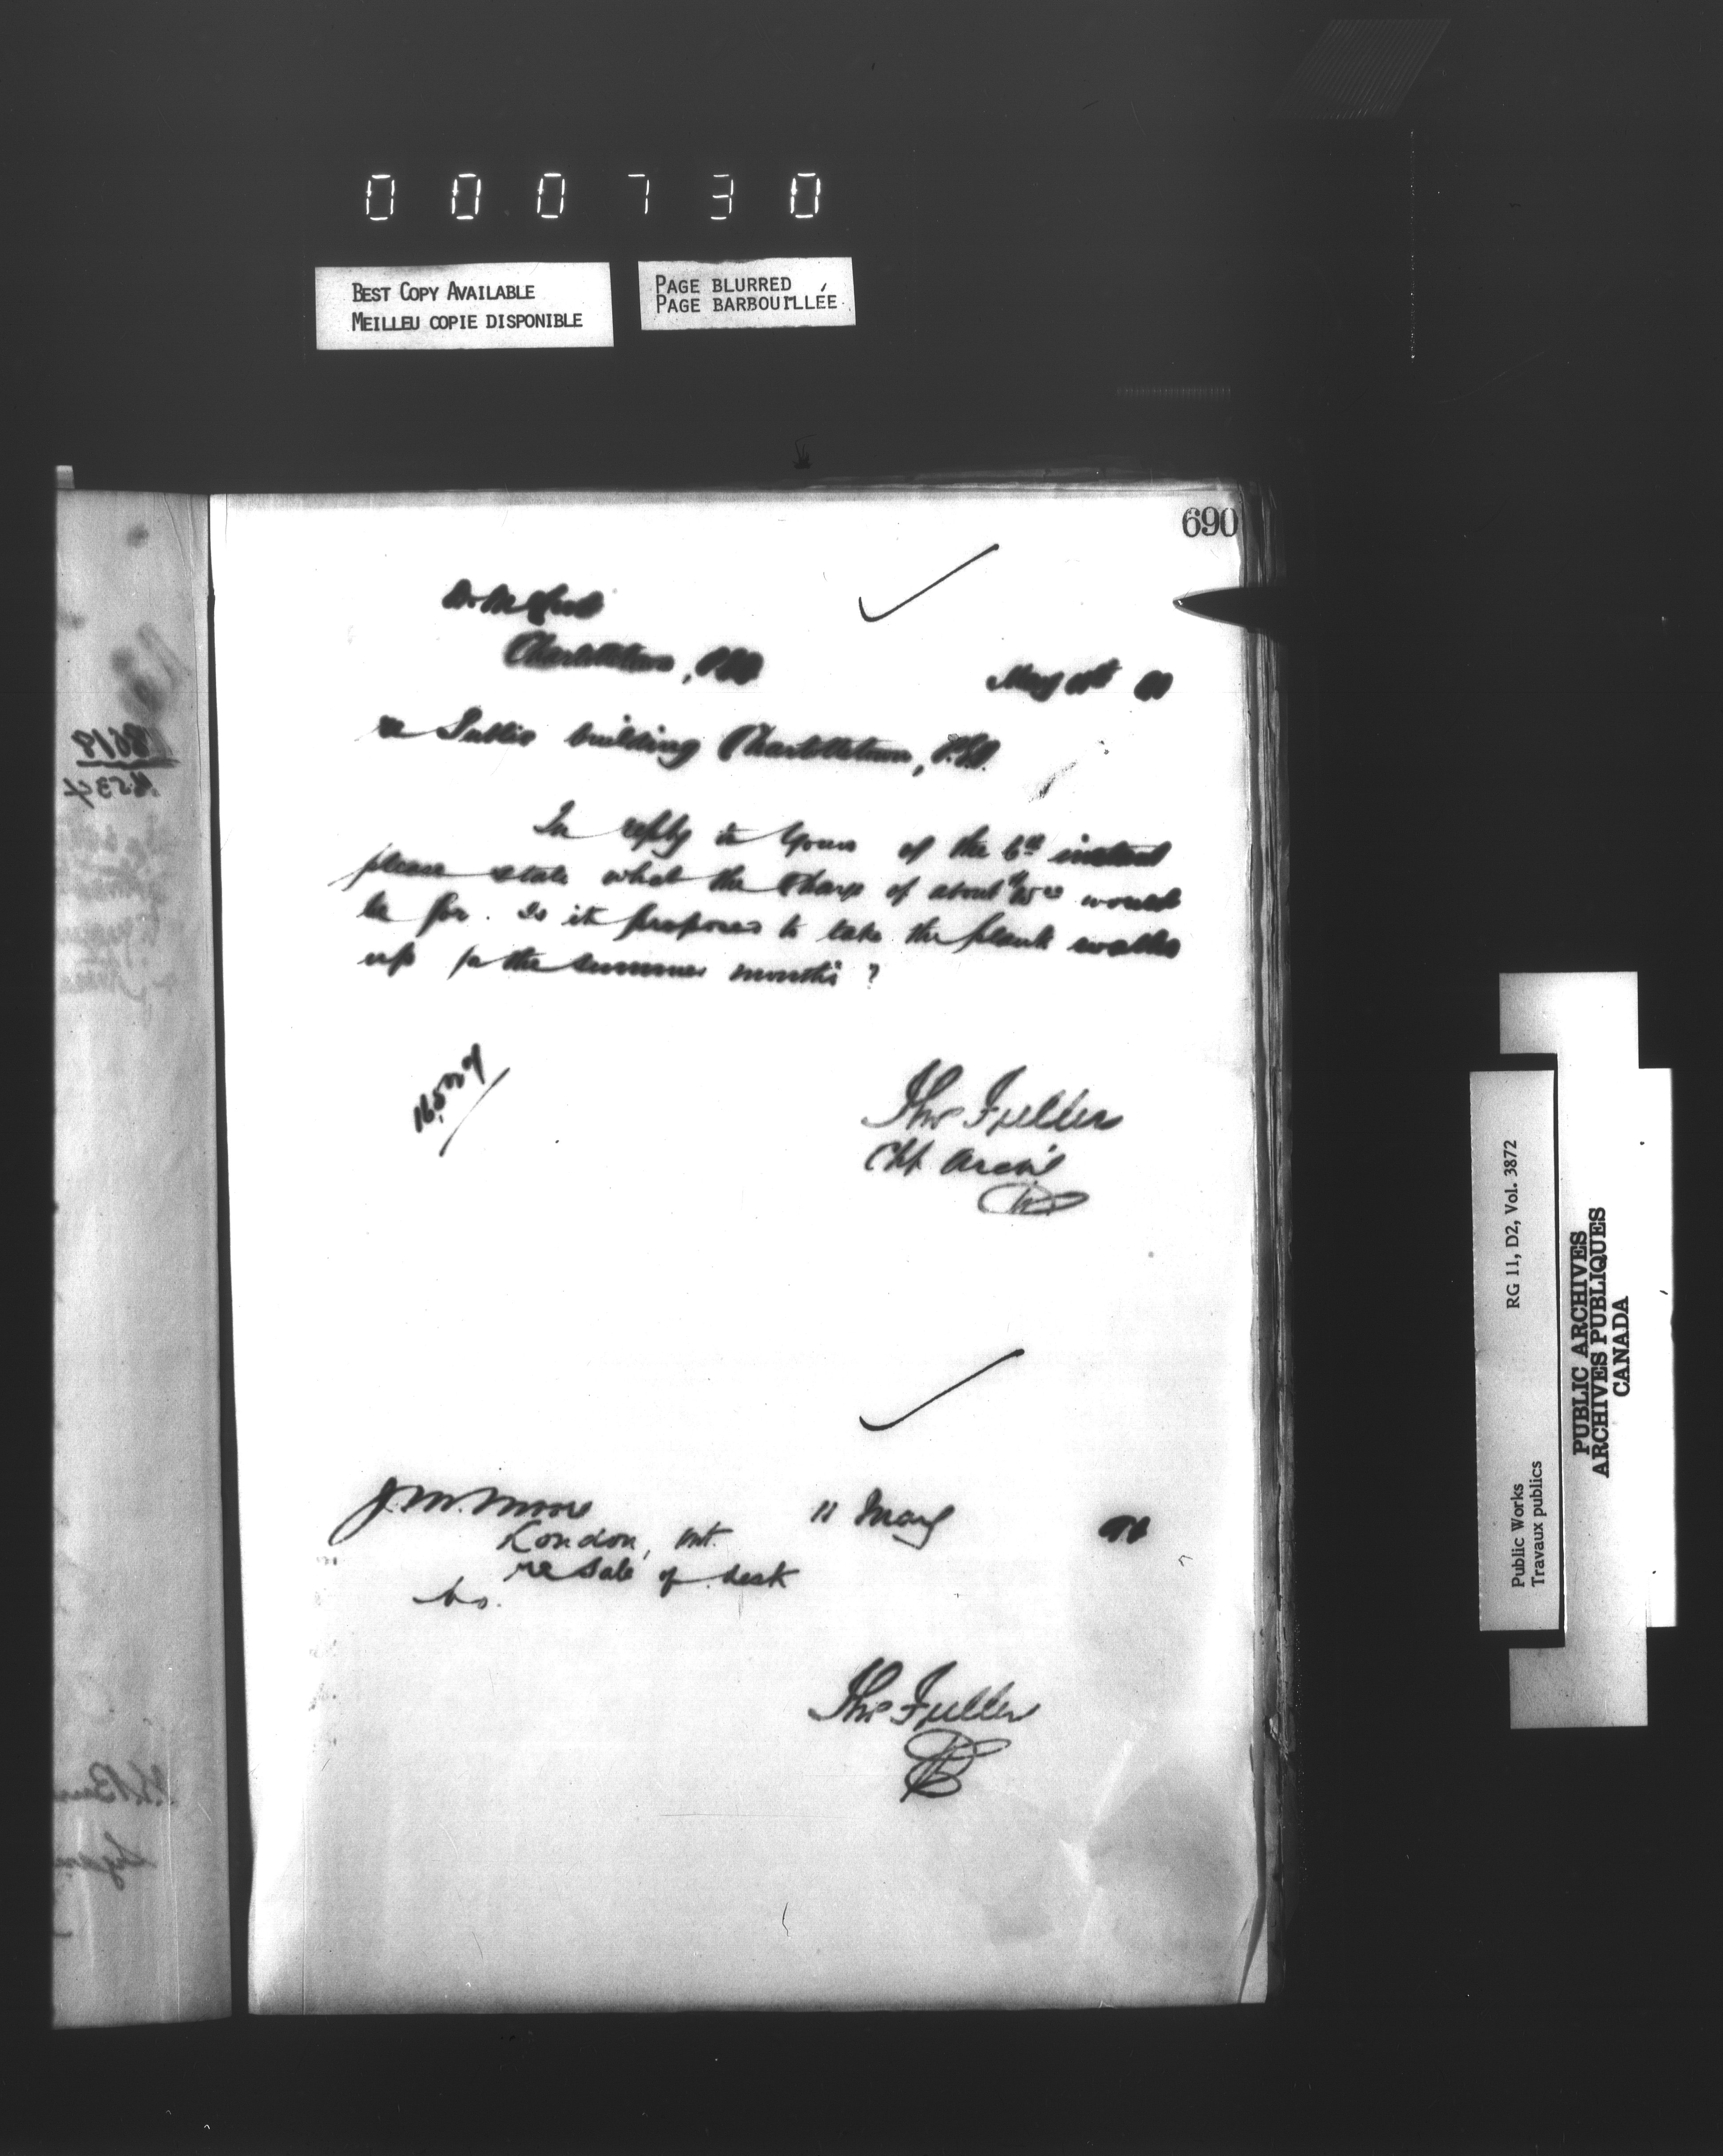 000730
BEST COPY AVAILABLE
MEILLEU COPIE DISPONIBLE
PAGE BLURRED
PAGE BARBOUILLÉE
690
Charlottetown, P.E.I.
May
re Public building Charlottetown, P.E.I.
In reply to yours of the 6th instant
please state what the charge of about would
be for. Is it proposed to take the plank walks
up for the summer months?
Thos Fuller
Chf Archt
J. M. Moore
11 May
London, Ont.
re sale of desk
Thos Fuller
Public Works
Travaux publics
RG 11, D2, Vol. 3872
PUBLIC ARCHIVES
ARCHIVES PUBLIQUES
CANADA